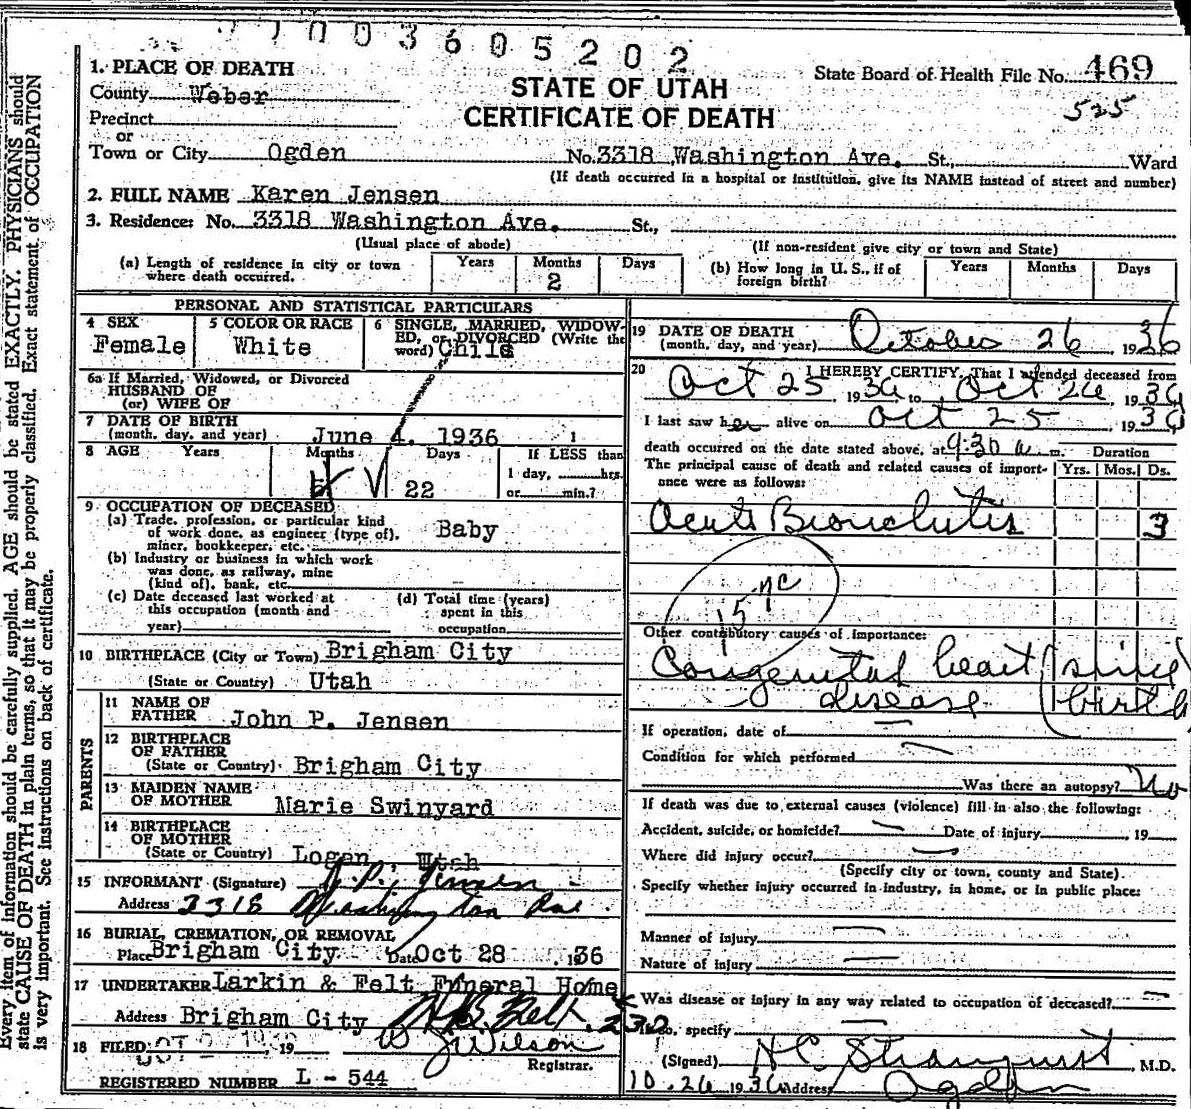 77003605202
1. PLACE OF DEATH
County Weber
Precinct
or
Town or City Ogden
STATE OF UTAH
CERTIFICATE OF DEATH
State Board of Health File No. 469
525
No. 3318 Washington Ave. St., Ward
(If death occurred in a hospital or institution, give its NAME instead of street and number)
2. FULL NAME Karen Jensen
3. Residence: No. 3318 Washington Ave. St.,
(Usual place of abode) (If non-resident give city or town and State)
(a) Length of residence in city or town where death occurred. Years Months 2 Days
(b) How long in U. S., if of foreign birth? Years Months Days
PERSONAL AND STATISTICAL PARTICULARS
4 SEX Female
5 COLOR OR RACE White
6 SINGLE, MARRIED, WIDOWED, or DIVORCED (Write the word) Child
6a If Married, Widowed, or Divorced
HUSBAND OF
(or) WIFE OF
7 DATE OF BIRTH
(month, day, and year) June 4, 1936
8 AGE Years Months 4 Days 22
If LESS than
1 day, hrs.
or min.?
9 OCCUPATION OF DECEASED
(a) Trade, profession, or particular kind
of work done, as engineer (type of),
miner, bookkeeper, etc. Baby
(b) Industry or business in which work
was done, as railway, mine
(kind of), bank, etc.
(c) Date deceased last worked at
this occupation (month and
year)
(d) Total time (years)
spent in this
occupation
10 BIRTHPLACE (City or Town) Brigham City
(State or Country) Utah
PARENTS
11 NAME OF
FATHER John P. Jensen
12 BIRTHPLACE
OF FATHER
(State or Country) Brigham City
13 MAIDEN NAME
OF MOTHER Marie Swinyard
14 BIRTHPLACE
OF MOTHER
(State or Country) Logan, Utah
15 INFORMANT (Signature) J. P. Jensen
Address 3318 Washington Ave.
16 BURIAL, CREMATION, OR REMOVAL
Place Brigham City Date Oct 28, 1936
17 UNDERTAKER Larkin & Felt Funeral Home
Address Brigham City H B Felt. 232
18 FILED OCT 19 W J Wilson
Registrar.
REGISTERED NUMBER L - 544
19 DATE OF DEATH
(month, day, and year) October 26, 1936
20 I HEREBY CERTIFY, That I attended deceased from
Oct 25 1936 to Oct 26, 1936
I last saw her alive on Oct 25, 1936
death occurred on the date stated above, at 9:30 a m. Duration
The principal cause of death and related causes of importance were as follows: Yrs. Mos. Ds.
Acute Bronchitis 3
15 nc
Other contributory causes of importance:
Congenital heart (since
disease (birth
If operation, date of
Condition for which performed
Was there an autopsy? No
If death was due to external causes (violence) fill in also the following:
Accident, suicide, or homicide? Date of injury 19
Where did injury occur?
(Specify city or town, county and State).
Specify whether injury occurred in industry, in home, or in public place:
Manner of injury
Nature of injury
Was disease or injury in any way related to occupation of deceased?
If so, specify
(Signed) H C Stranquist, M.D.
10.26 1936 Address Ogden
Every item of information should be carefully supplied. AGE should be stated EXACTLY. PHYSICIANS should
state CAUSE OF DEATH in plain terms, so that it may be properly classified. Exact statement of OCCUPATION
is very important. See instructions on back of certificate.